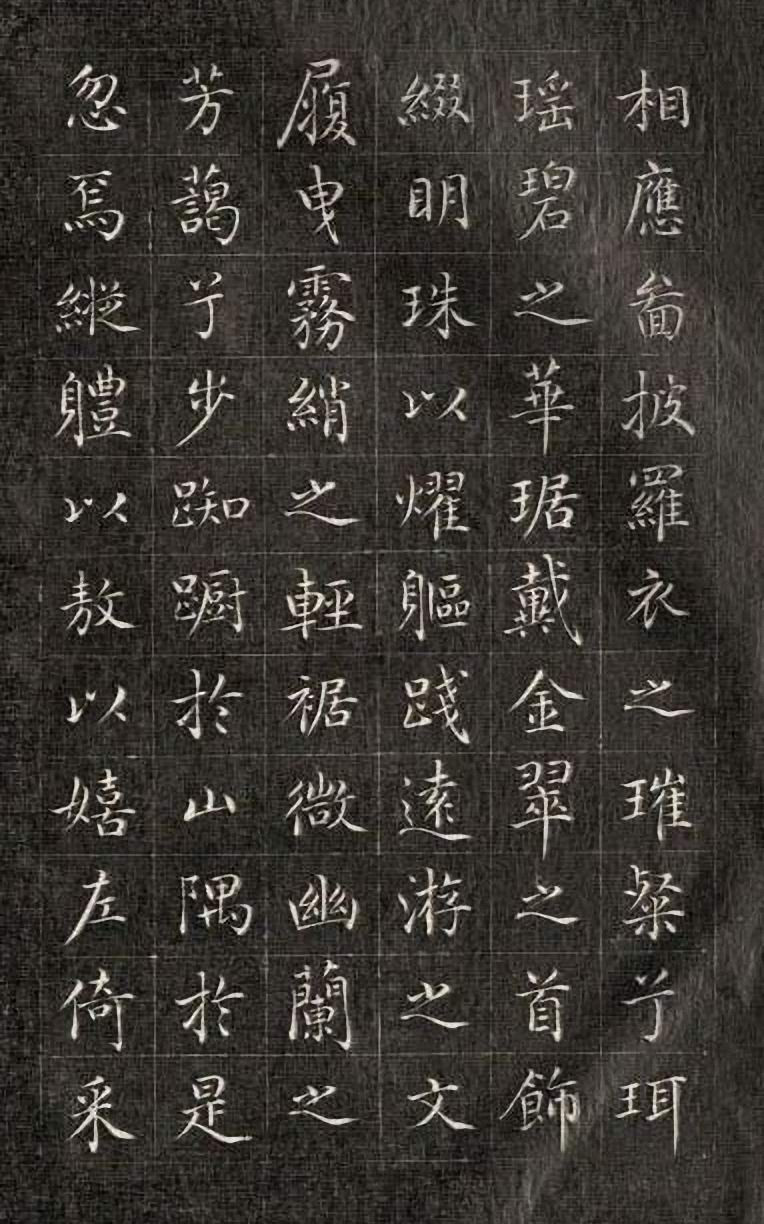 相應啚披羅衣之璀粲兮珥
瑶碧之華琚戴金翠之首飾
綴眀珠以燿軀踐逺游之文
履曳霧綃之輕裾微幽蘭之
芳藹兮步踟蹰於山隅於是
忽焉縱軆以敖以嬉左倚采